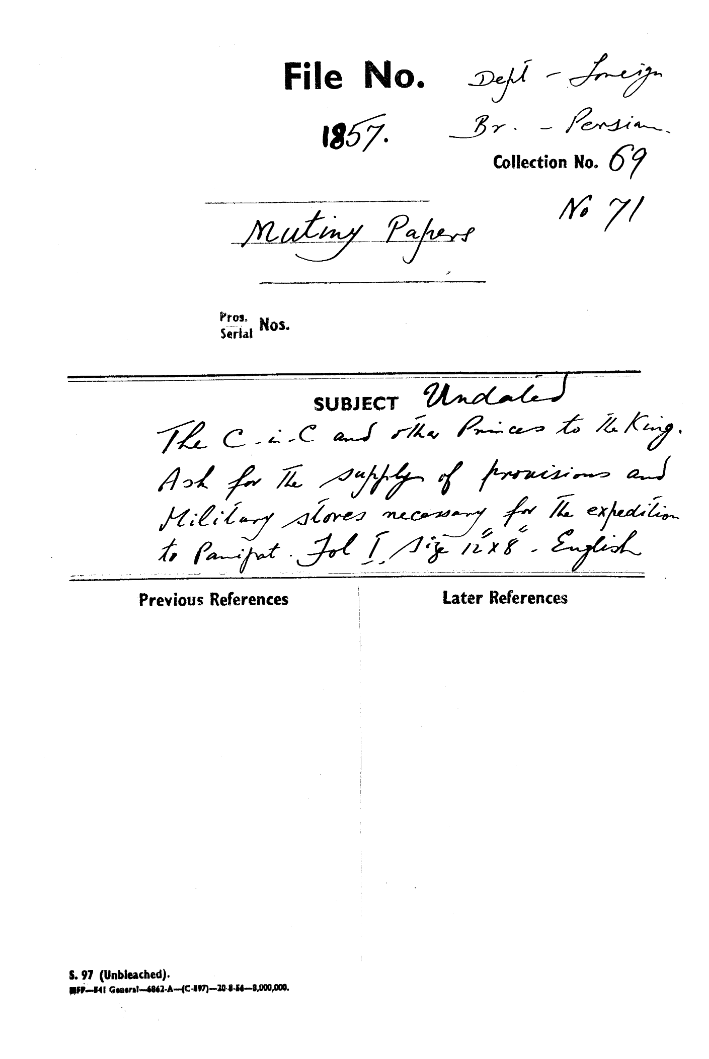 File No.
Dept - Foreign
1857.
Br. - Persian.
Collection No. 69
No 71
Mutiny Papers
Pros.
Serial Nos.
SUBJECT Undated
The C-in-C and other Princes to the King.
Ask for the supply of provisions and
Military stores necessary for the expedition
to Panipat. Fol I, Size 12"x8" - English
Previous References
Later References
S. 97 (Unbleached).
MFP—541 General—6862-A—(C-897)—20-8-56—8,000,000.